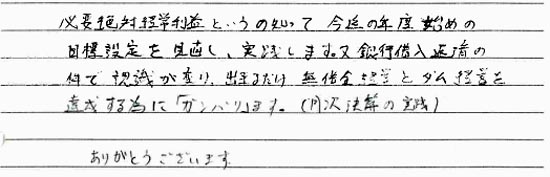 必要絶対経常利益というの知って今迄の年度始めの
目標設定を見直し、実践します。又銀行借入返済の
件で認識が変り、出来るだけ無借金経営とダム経営を
達成する為に「ガンバリ」ます。(月次決算の実践)
ありがとうございます